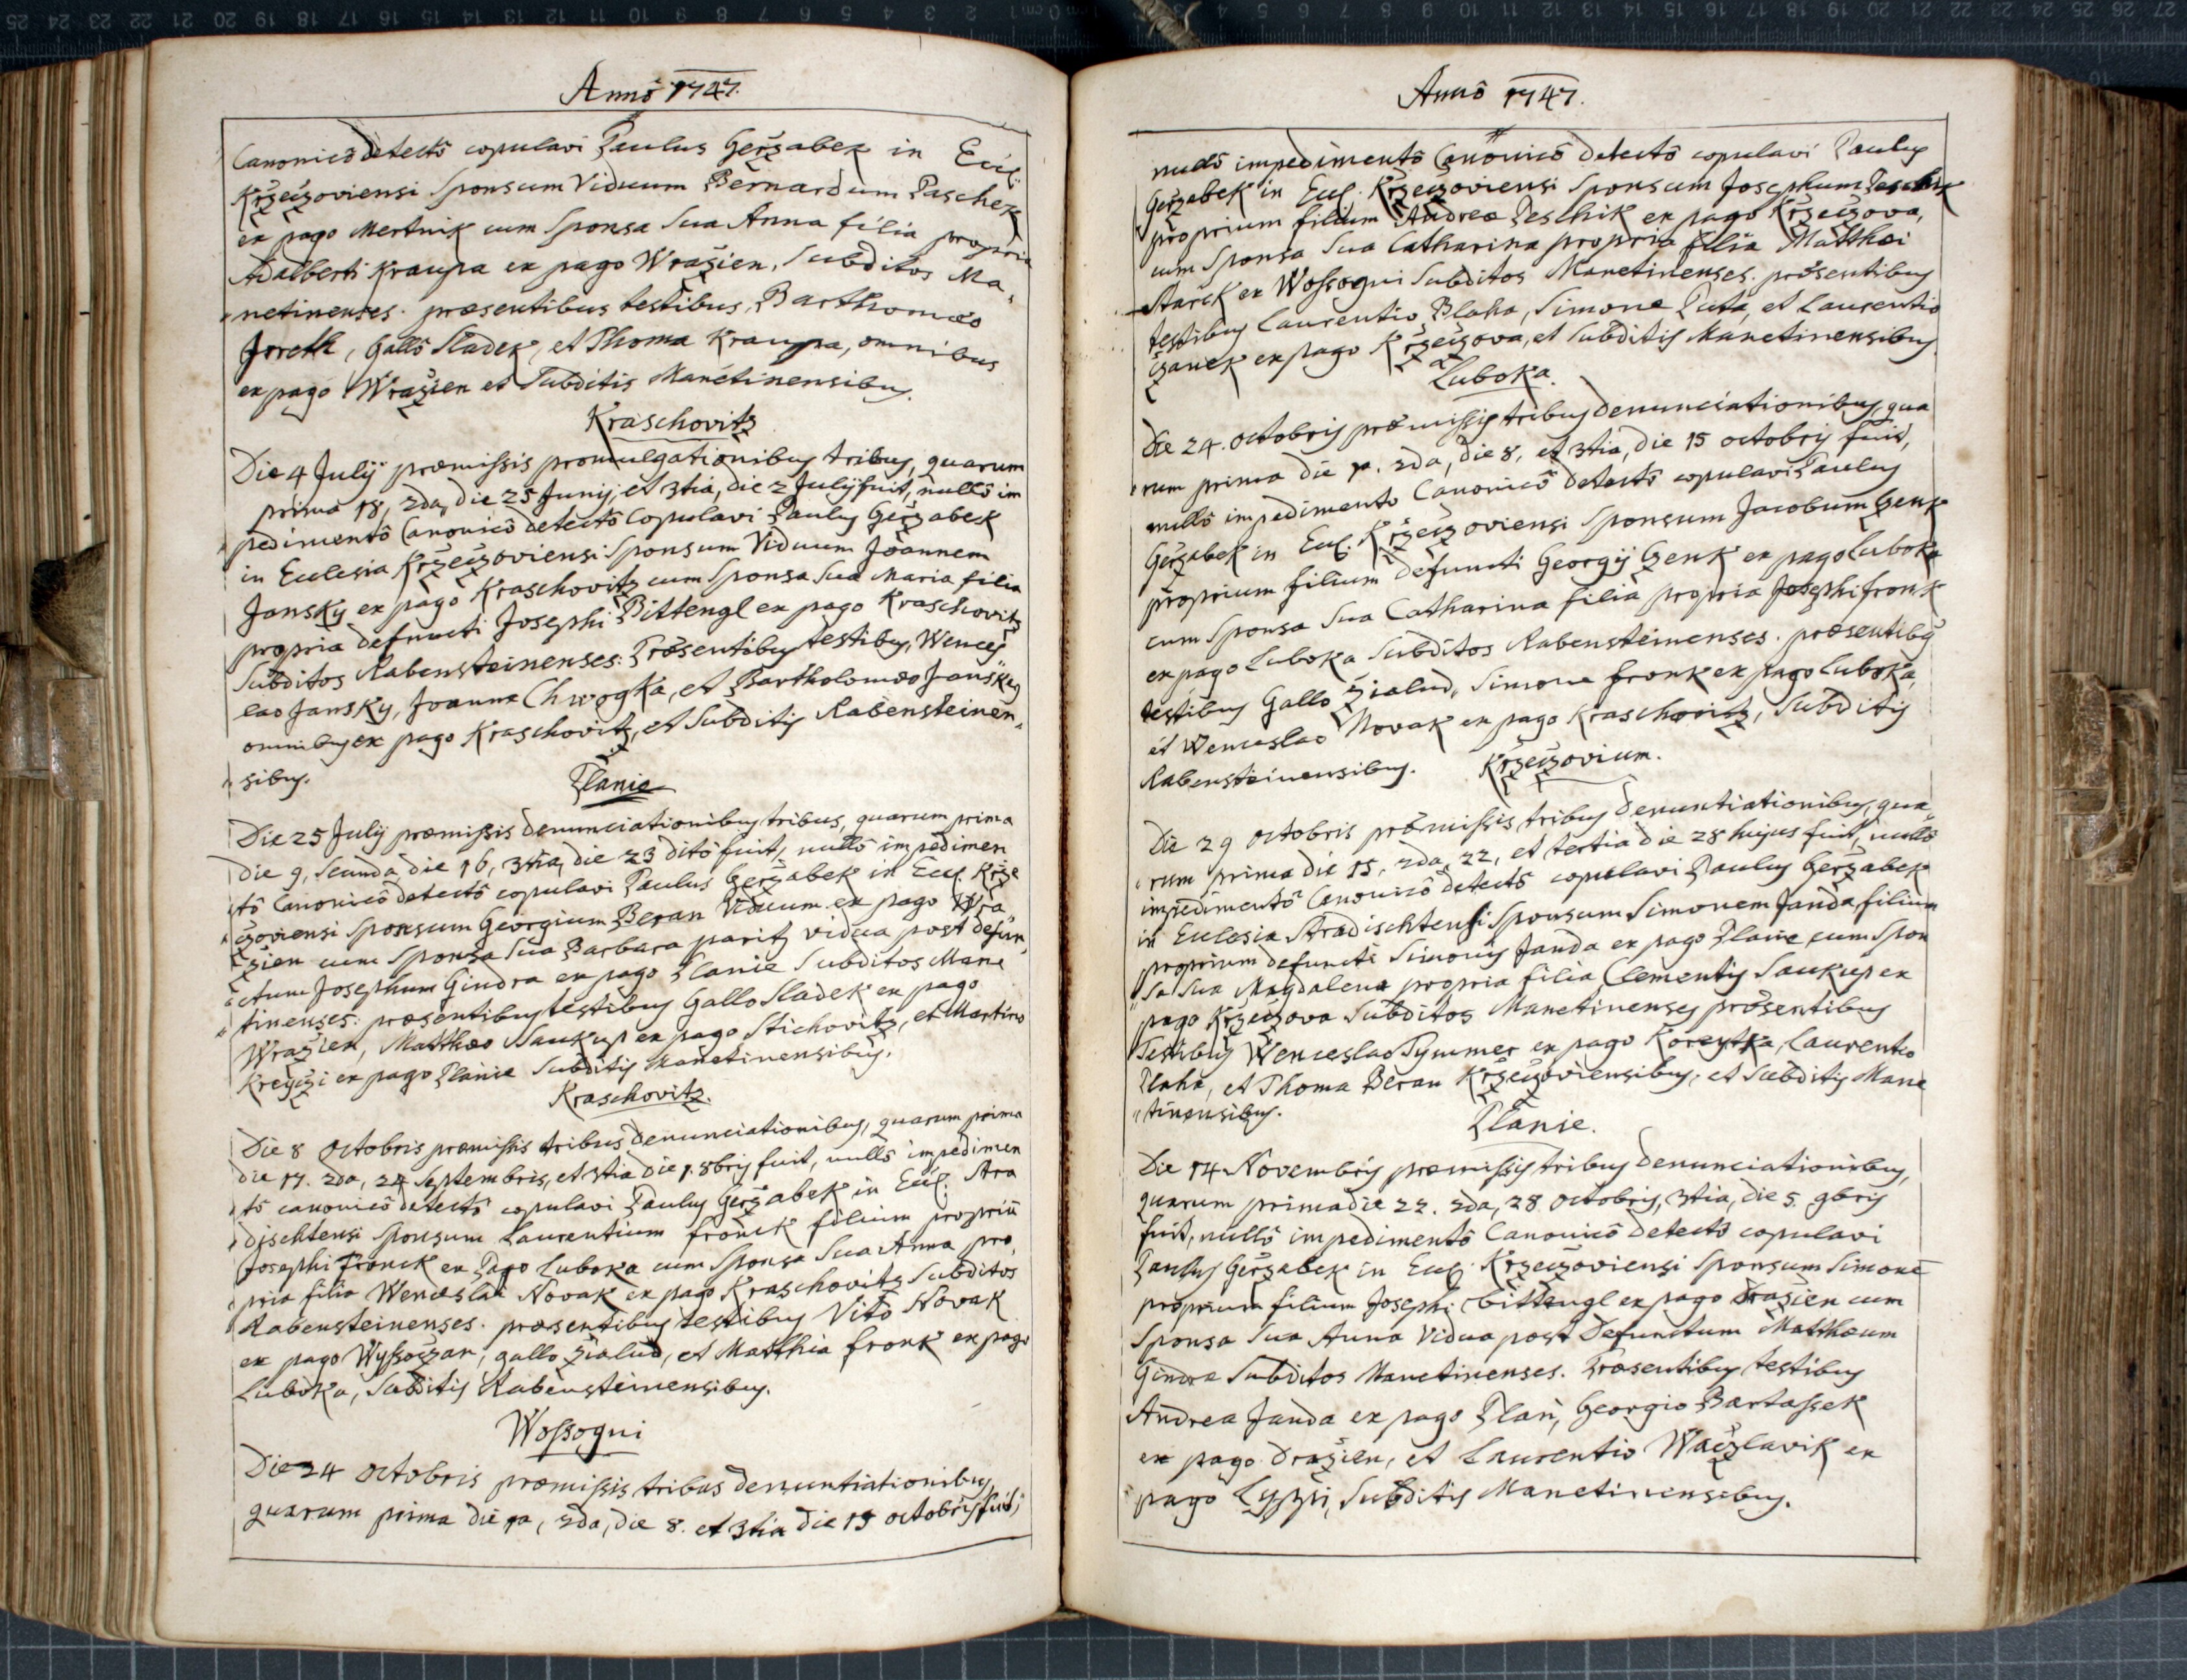 Annô 1747.
Canonicô detectô copulavi Paulus Geržabek in Eccl:
Kržeczoviensi Sponsum Viduum Bernardum Paschek
ex pago Mertnik cum Sponsa Sua Anna filia propria
Adalberti Kraupa ex pago Wražien, Subditos Ma„
„netinenses. præsentibus testibus, Barthomæo
Joreth, Gallô Sladek, et Thoma Kraupa, omnibus
ex pago Wražien et Subditis Manetinensibus.
Kraschovitz
Die 4 Julij præmissis promulgationibus tribus, quarum
prima 18, 2da, die 25 Junij, et 3tia, die 2 Julij fuit, nullô im
„pedimentô Canonicô detectô Copulavi Paulus Geržabek
in Ecclesia Kržeczoviensi Sponsum Viduum Joannem
Jansky ex pago Kraschovitz cum Sponsa Sua Maria filia
propria defuncti Josephi Bittengl ex pago Kraschovitz
Subditos Rabensteinenses: Præsentibus testibus, Wences„
lao Jansky, Joanne Chwogka, et Bartholomæo Jansky
omnibus ex pago Kraschovitz, et Subditis Rabensteinen„
„sibus.
Planie
Die 25 Julij præmissis denunciationibus tribus, quarum prima
die 9, Secunda, die 16, 3tia, die 23 ditô fuit, nullô impedimen
„tô Canonicô detectô copulavi Paulus Geržabek in Eccl. Krže
„czoviensi Sponsum Georgium Beran Viduum ex pago Wra
„zien cum Sponsa Sua Barbara parit, vidua post defun„
„ctum Josephum Gindra ex pago Planie Subditos Mane
„tinenses: præsentibus testibus Gallo Sladek ex pago
Wražien, Matthæo Saukup ex pago Stichovitz, et Martino
Kreyczi ex pago Planie Subditis Manetinensibus.
Kraschovitz.
Die 8 Octobris præmissis tribus denunciationibus, quarum prima
die 17. 2da, 24 Septembris, et 3tia die 1. 8bris fuit, nullô impedimen
„tô canonicô detectô copulavi Paulus Geržabek in Eccl. Hra
„dischtensi Sponsum Laurentium fronck filium propriũ
Josephi Fronck ex Pago Luboka cum Sponsa Sua Anna pro„
„pria filia Wenceslai Novak ex pago Kraschovitz Subditos
Rabensteinenses. præsentibus testibus Vitô Novak
ex pago Wyssoczan, gallo Žialud, et Matthia fronk ex pago
Luboka, Subditis Rabensteinensibus.
Wossogni
Die 24 Octobris præmissis tribus denuntiationibus,
quarum prima die 1a, 2da, die 8. et 3tia die 15 octobris fuit,
Annô 1747.
nullô impedimentô Canonicô detectô copulavi Paulus
Geržabek in Eccl. Kržeczoviensi Sponsum Josephum Peschik
proprium filium Andreæ Peschik ex pago Kržeczova,
cum Sponsa Sua Catharina propria filia Matthæi
Starek ex Wossogni Subditos Manetinenses. præsentibus
testibus Laurentio Blaha, Simone Puta, et Laurentio
Czanek ex pago Kržeczova, et Subditis Manetinensibus.
Luboka.
Die 24. octobris præmissis tribus denunciationibus, qua
„rum prima die 1a. 2da, die 8, et 3tia, die 15 octobris fuit,
nullô impedimento Canonicô detectô copulavi Paulus
Geržabek in Eccl. Kržeczoviensi Sponsum Jacobum Czenk
proprium filium defuncti Georgij Czenk ex pago Luboka
cum Sponsa Sua Catharina filia propria Josephi fronk
ex pago Luboka Subditos Rabensteinenses. præsentibus
testibus Gallo Žialud, Simone fronk ex pago Luboka,
et Wenceslao Novak ex pago Kraschovitz, Subditis
Rabensteinensibus.
Kržeczovium.
Die 29 octobris præmissis tribus denuntiationibus, qua„
„rum prima die 15, 2da, 22, et tertia die 28 hujus fuit, nullô
impedimentô Canonicô detectô copulavi Paulus Geržabek
in Ecclesia Hradischtensi Sponsum Simonem Janda, filium
proprium defuncti Simonis Janda ex pago Planie cum Spon
„sa Sua Magdalena propria filia Clementis Saukup ex
pago Kržeczova Subditos Manetinenses præsentibus
Testibus Wenceslao Tymmer ex pago Koreytka, Laurentio
Blaha, et Thoma Beran Kržeczoviensibus, et Subditis Mane
„tinensibus.
Planie.
Die 14 Novembris præmissis tribus denunciationibus,
quarum prima die 22. 2da, 28 Octobris, 3tia, die 5. 9bris
fuit, nullô impedimentô Canonicô detectô copulavi
Paulus Geržabek in Eccl. Kržeczoviensi Sponsum Simonẽ
proprium filium Josephi Bittengl ex pago Dražien cum
Sponsa Sua Anna Vidua post Defunctum Matthæum
Gindra Subditos Manetinenses. Præsentibus testibus
Andrea Janda ex pago Plan, Georgio Bartassek
ex pago Dražien, et Laurentio Waczlavik ex
pago Lypzi, Subditis Manetinensibus.